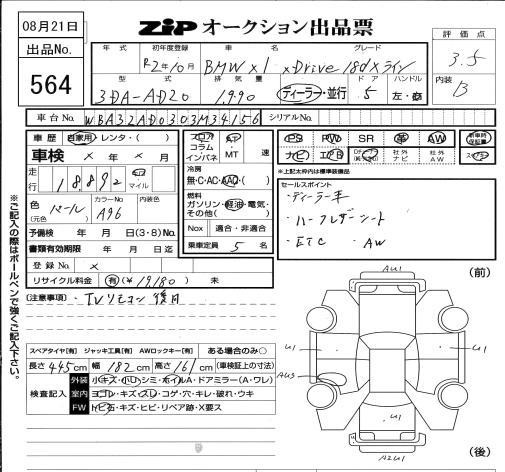 08月21日
出品No.
564
ZIP オークション出品票
評価点
3.5
内装
B
年式 初年度登録 車名 グレード
R2年10月 BMW X1 xDrive 18d xライン
型式 排気量 ドア ハンドル
3DA-AD20 1,990 ディーラー・並行 5 左・右
車台No. WBA32AD0303M34156 シリアルNo.
車歴 自家用・レンタ・( )
車検 × 年 × 月
走行 18,892 マイル
色(元色) パール カラーNo. A96 内装色
予備検 年 月 日(3・8)No.
書類有効期限 年 月 日迄
登録No. ×
リサイクル料金 有(¥19,180) 未
フロア コラム インパネ
AT ・ MT 速
冷房
無・C・AC・AAC( )
燃料
ガソリン・軽油・電気・その他( )
Nox 適合・非適合
乗車定員 5 名
PS PW SR 革 AW
ナビ エアB 社外ナビ 社外AW
新車時保証書
※上記太枠内は標準装備品
セールスポイント
・ディーラー車
・ハーフレザーシート
・ETC ・AW
(注意事項)・TVリモコン後日
スペアタイヤ[有] ジャッキ工具[有] AWロックキー[有] ある場合のみ○
長さ 445cm 幅 182cm 高さ 161cm (車検証上の寸法)
検査記入
外装 小キズ・小凹・シミ・ホイルA・ドアミラー(A・ワレ)
室内 ヨゴレ・キズ・スレ・コゲ・穴・キレ・破れ・ウキ
FW トビ石・キズ・ヒビ・リペア跡・X要ス
※ご記入の際はボールペンで強くご記入下さい。
(前)
AU1
U1
U1
AU3
U1
AZU1
(後)